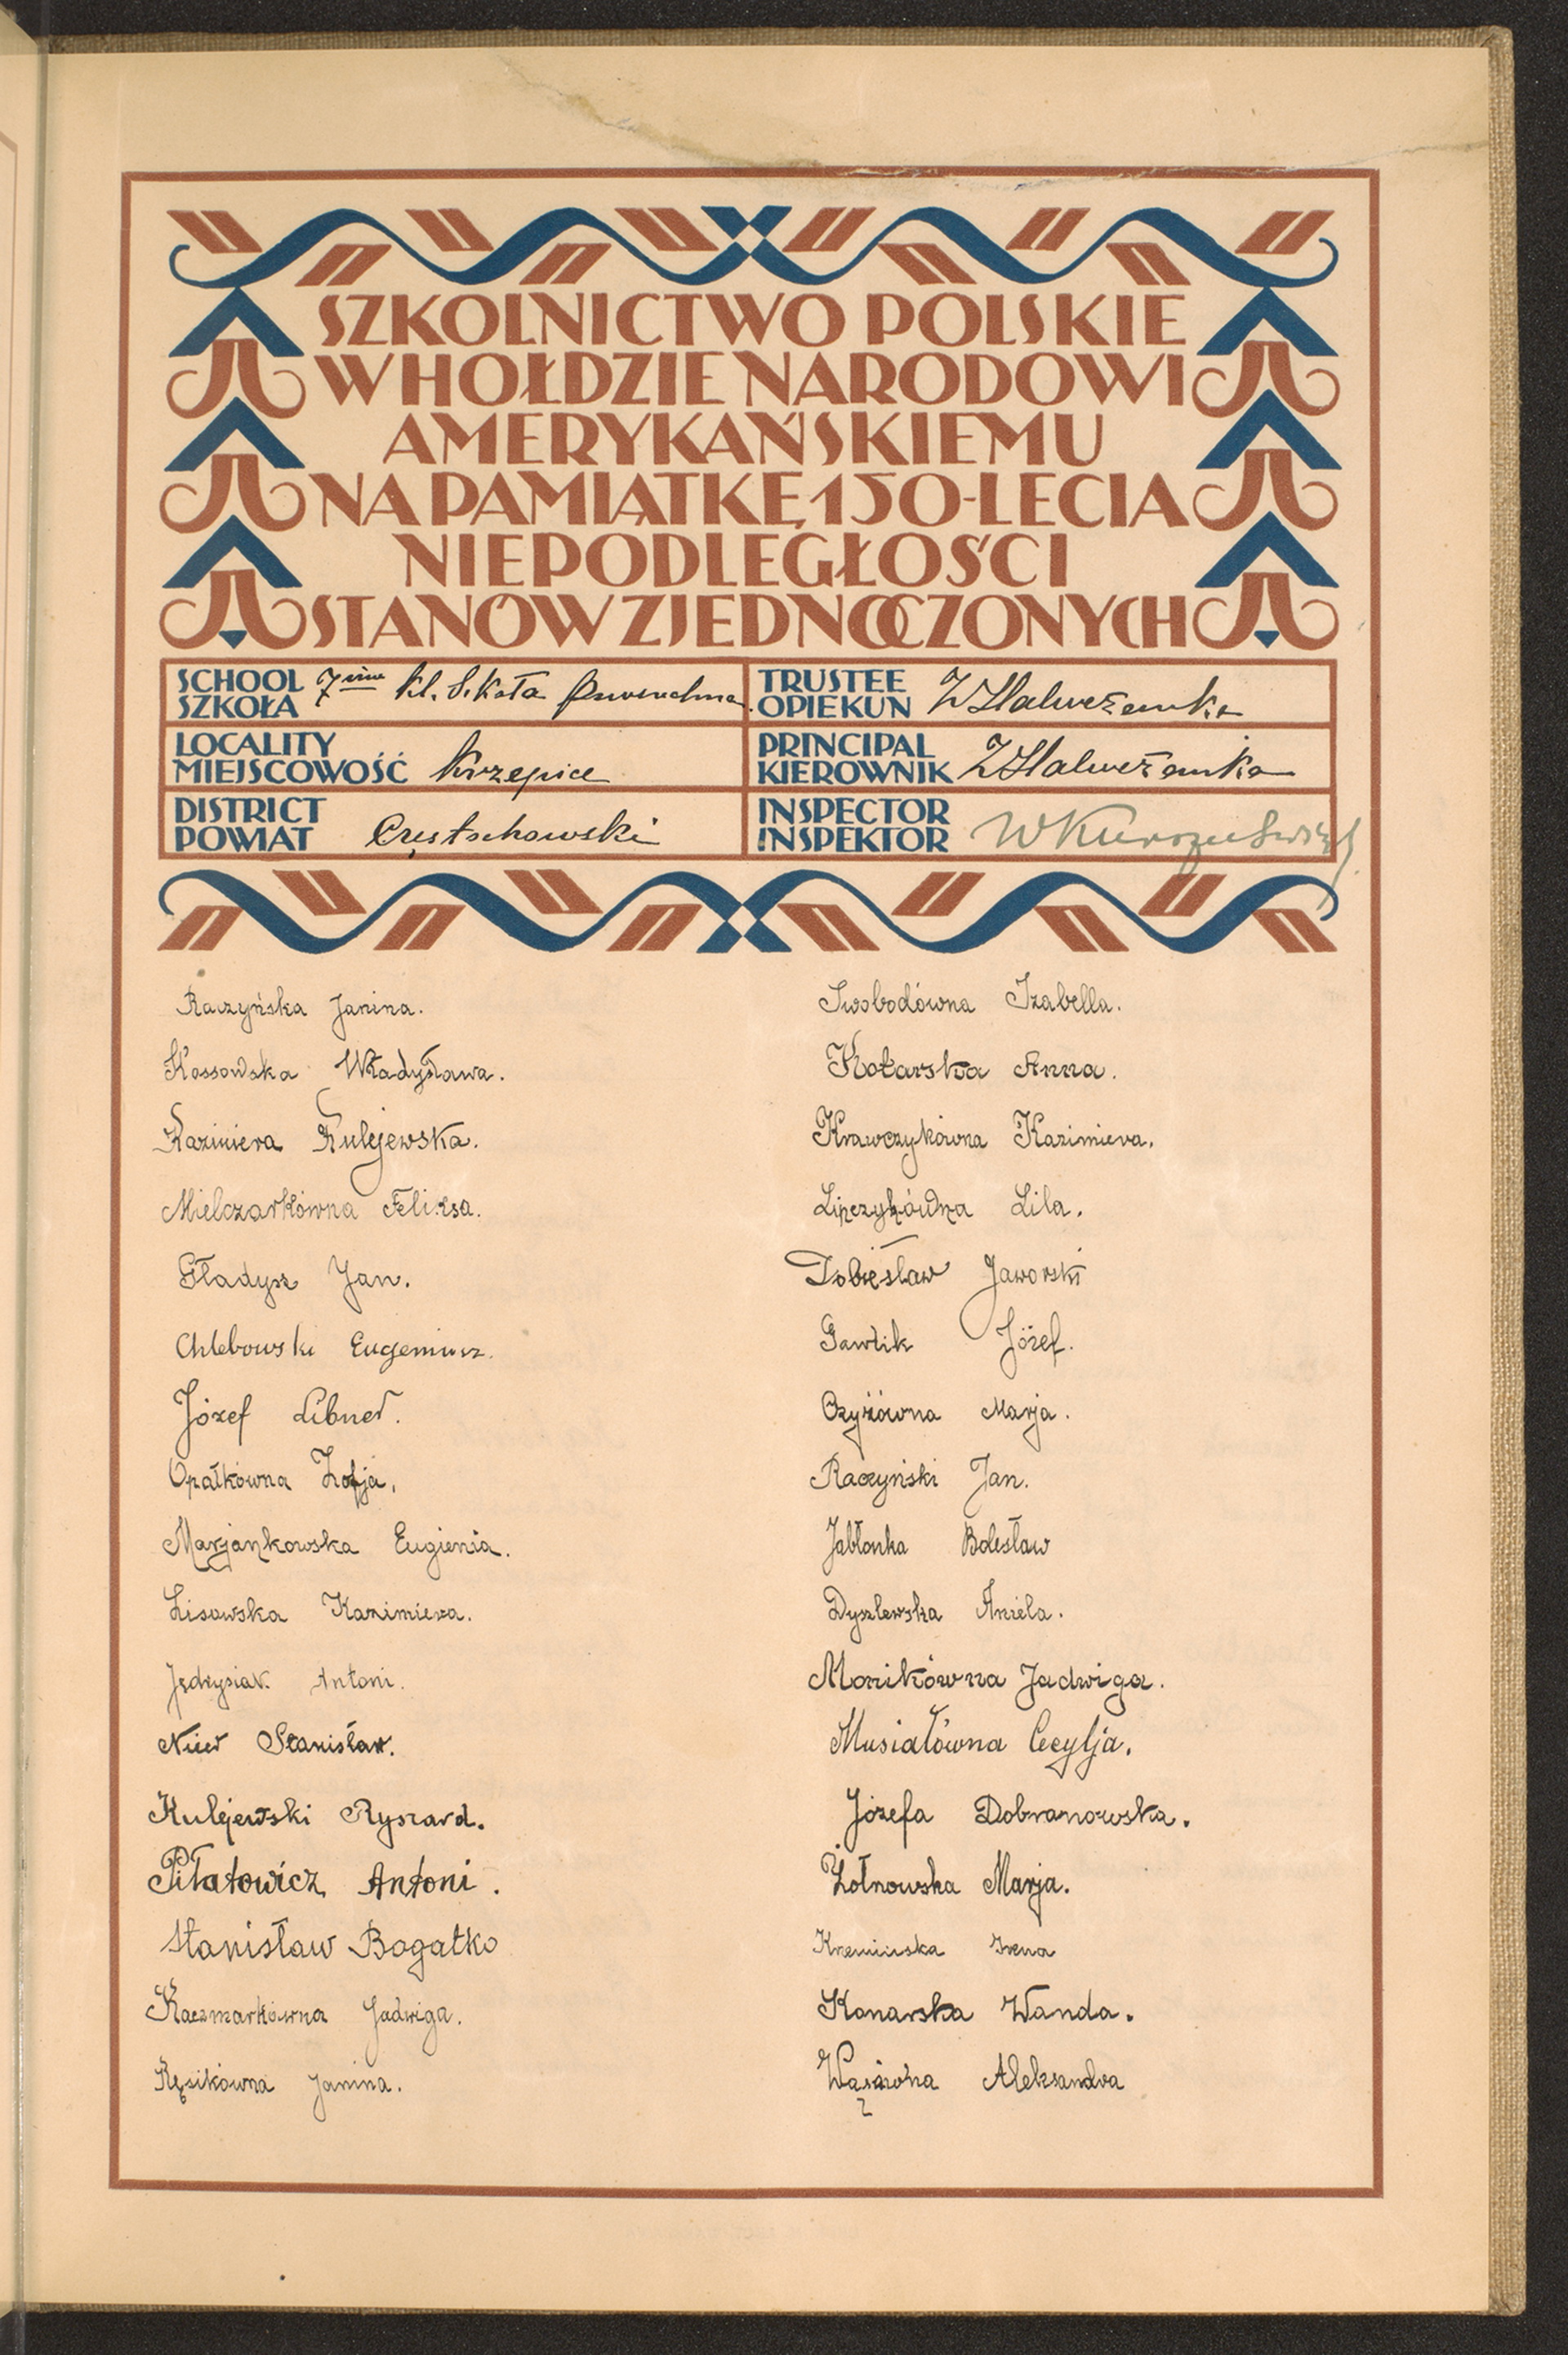 SZKOLNICTWO POLSKIE
W HOŁDZIE NARODOWI
AMERYKAŃSKIEMU
NA PAMIĄTKĘ 150-LECIA
NIEPODLEGŁOŚCI
STANÓW ZJEDNOCZONYCH
SCHOOL
SZKOŁA
7 kl. Szkoła Powszechna.
TRUSTEE
OPIEKUN
LOCALITY
MIEJSCOWOŚĆ
Krzepice
PRINCIPAL
KIEROWNIK
DISTRICT
POWIAT
Częstochowski
INSPECTOR
INSPEKTOR
Raczyńska Janina.
Kossowska Władysława.
Kazimiera Kulejewska.
Mielczarkówna Feliksa.
Gładysz Jan.
Chlebowski Eugeniusz.
Józef Libner.
Opałkówna Zofja.
Marjankowska Eugienia.
Lisowska Kazimiera.
Jędrysiak Antoni.
Stanisław.
Kulejewski Ryszard.
Piłatowicz Antoni.
Stanisław Bogatko
Kaczmarkówna Jadwiga.
Kęsikówna Janina.
Swobodówna Izabella.
Kotarska Anna.
Krawczykówna Kazimiera.
Lipczykówna Lila.
Dobiesław Jaworski
Gawlik Józef.
Czyżówna Marja.
Raczyński Jan.
Jabłonka Bolesław
Dyszlewska Aniela.
Monikówna Jadwiga.
Musiałówna Cecylja.
Józefa Dobranowska.
Żółnowska Marja.
Kremińska Irena
Konarska Wanda.
Aleksandra